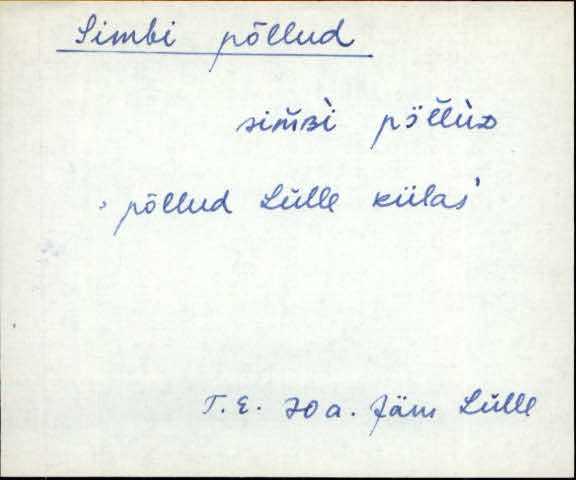 Simbi põllud
sim̆ʙì pɔ̈l̆lùᴅ
põllud Lülle külas
T.E. 70a. Jäm Lülle